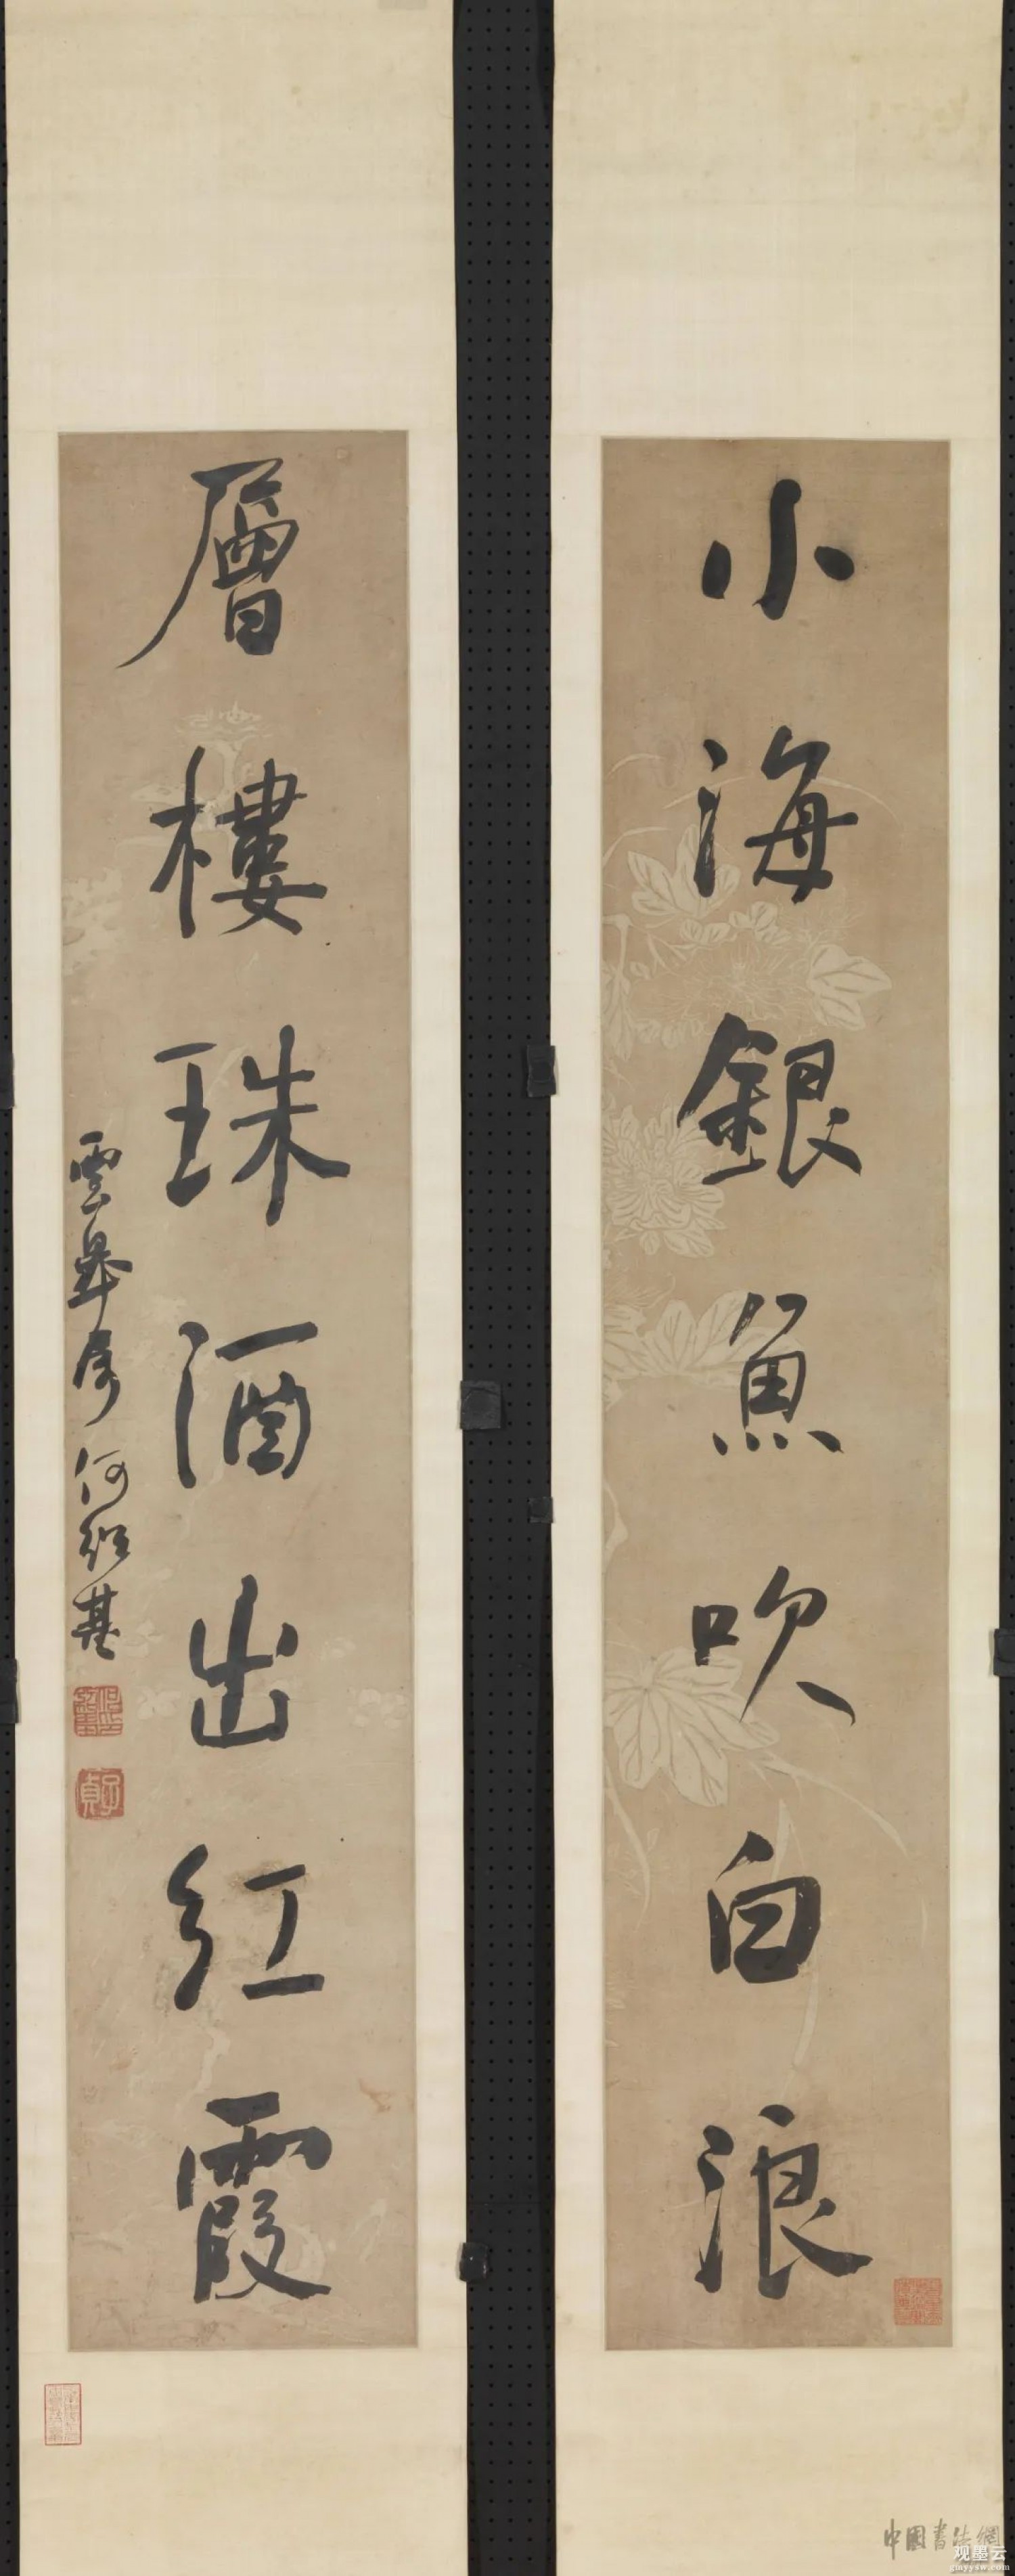 小海銀魚吹白浪
層樓珠酒出紅霞
雲皋屬 何紹基
子貞
中國書法網
观墨云
gmyysw.com